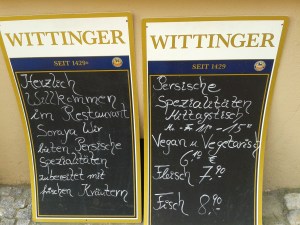 WITTINGER
SEIT 1429
Herzlich
Willkommen
im Restaurant
Soraya Wir
bieten Persische
Spezialitäten
zubereitet mit
frischen Kräutern
WITTINGER
SEIT 1429
Persische
Spezialitäten
Mittagstisch
Mo - Fr 11°° - 15°°
Vegan u Vegetarisch
6.90 €
Fleisch 7,90
Fisch 8,90